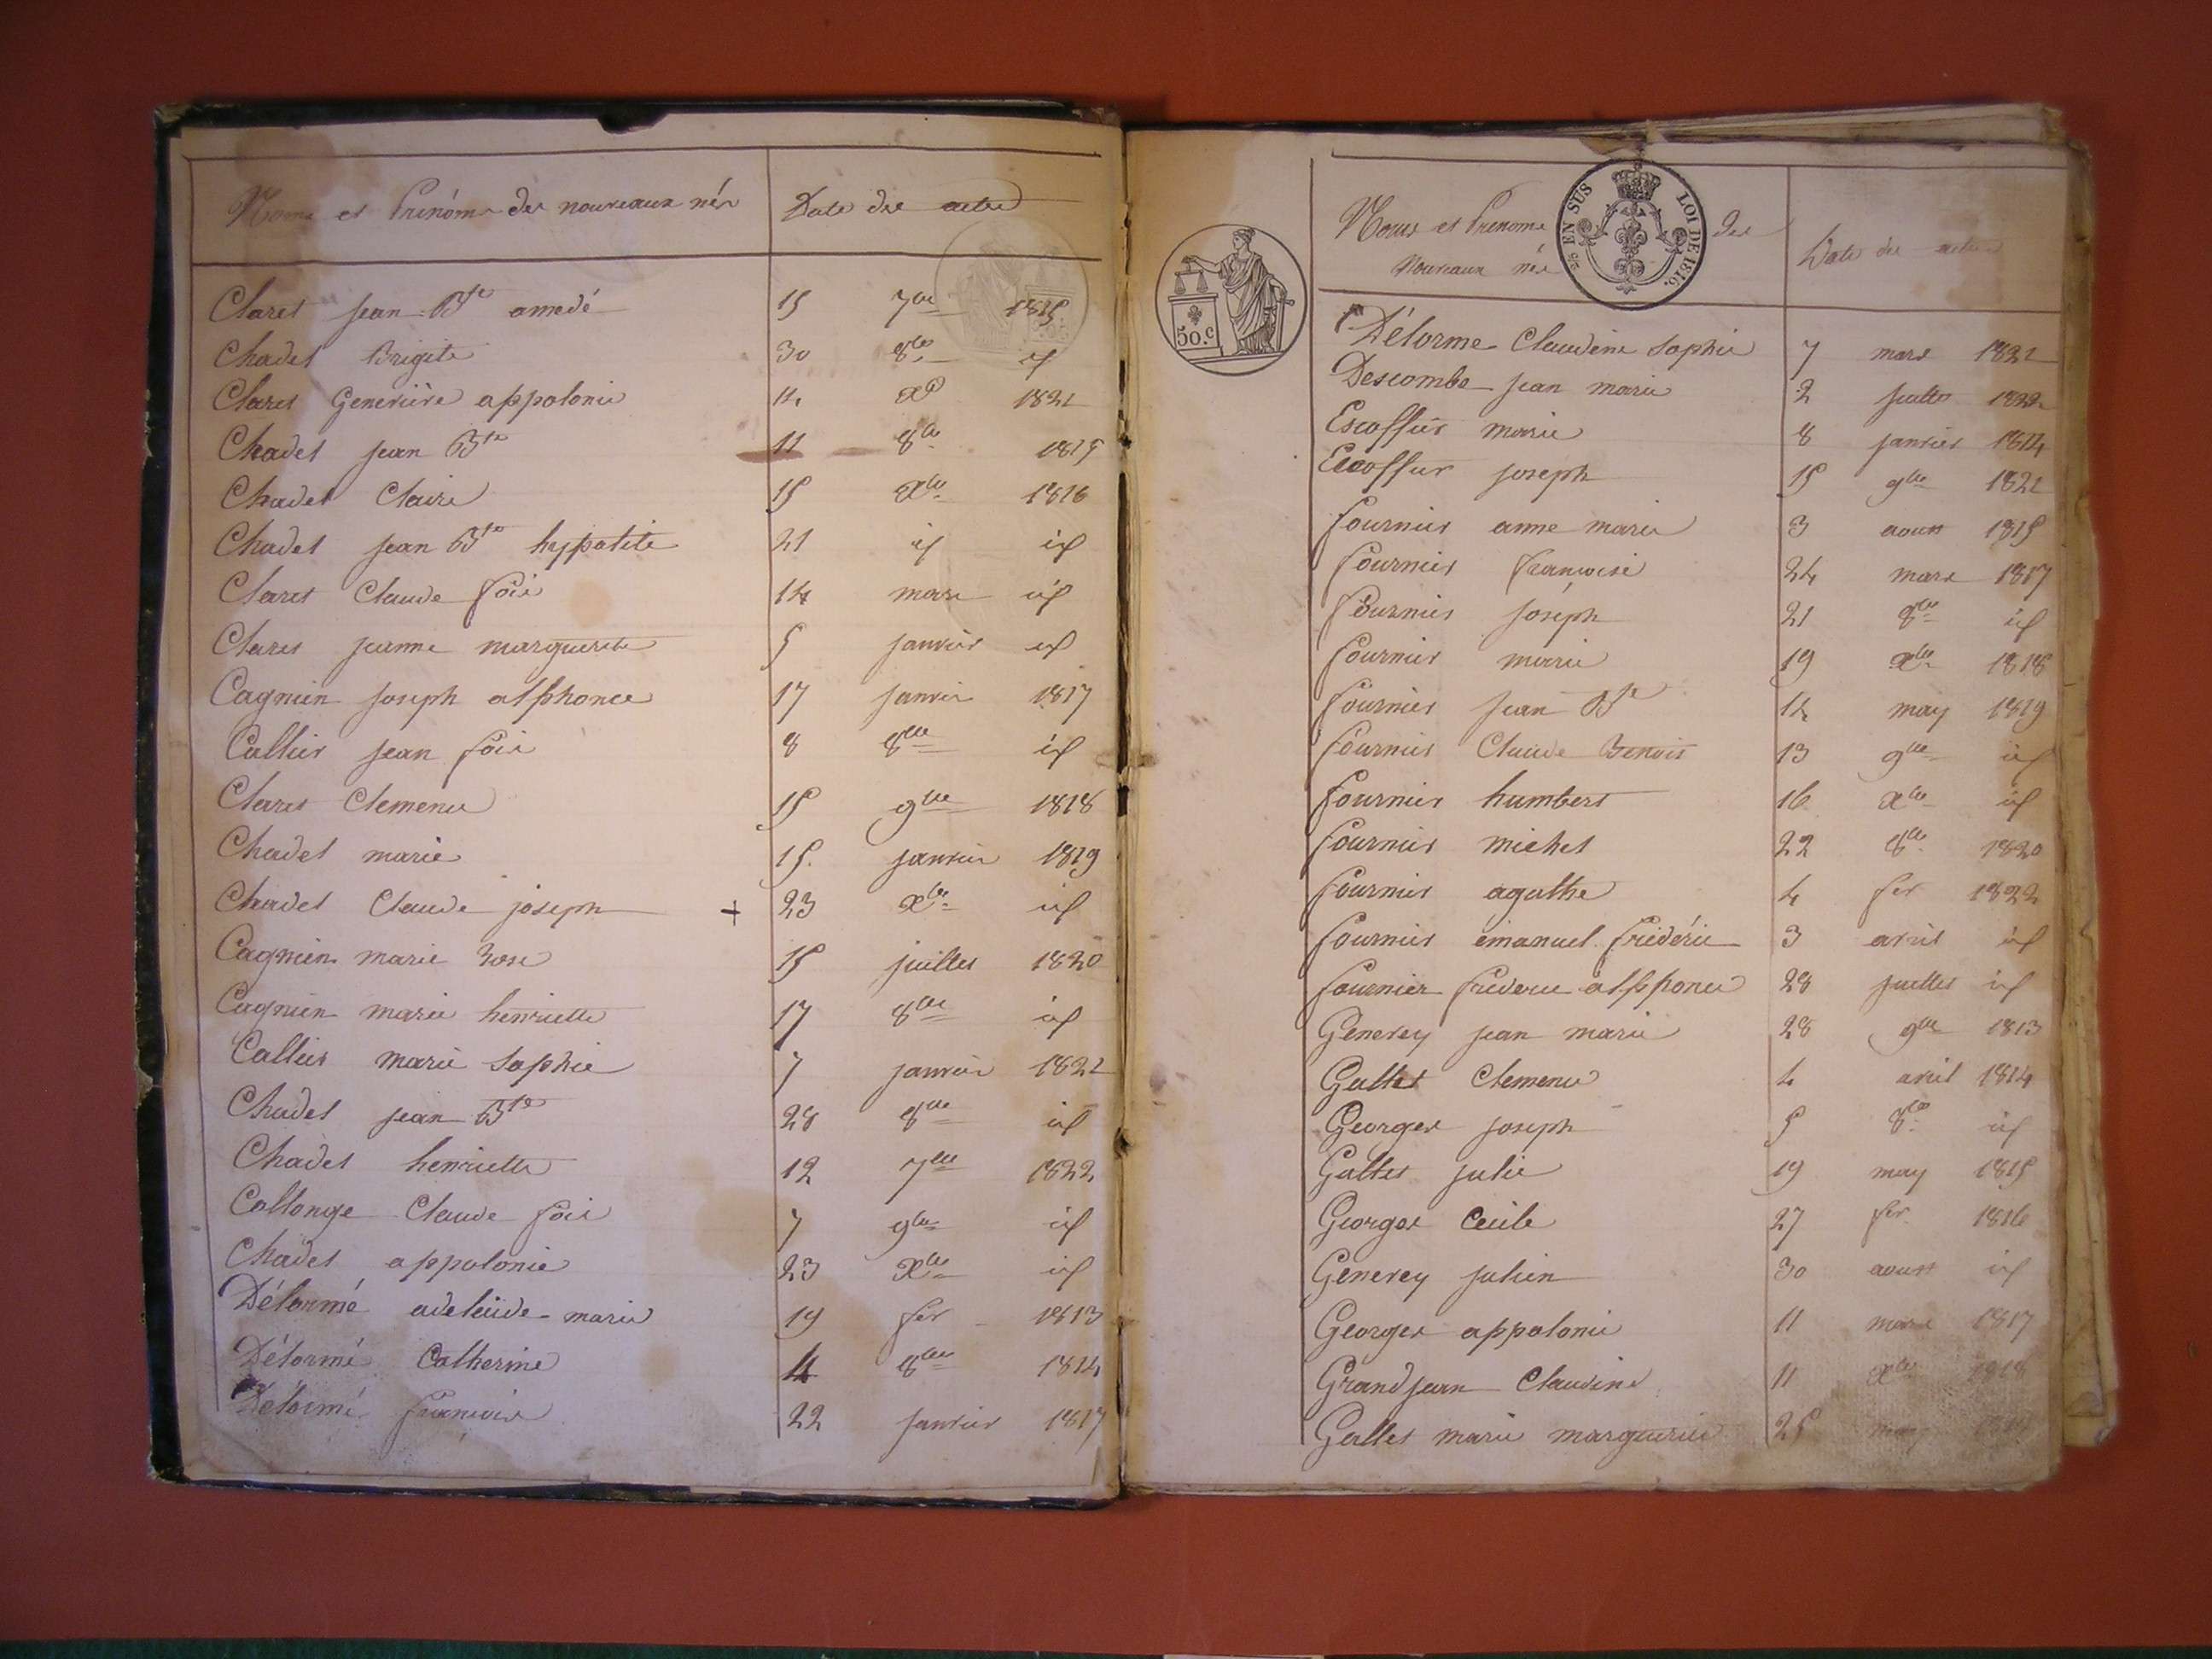 Noms et Prénoms des nouveaux nés Date des actes
Claret jean Bte amedé 15 7bre 1815
Chadel Brigite 30 8bre id
Claret Geneviève appolonie 14 Xb 1821
Chadel jean Bte 11 8bre 1815
Chadel Claire 15 Xbre 1816
Chadel jean Bte hyppolite 21 id id
Claret Claude fois 14 mars id
Claret jeanne marguerite 5 janvier id
Cagnien joseph alphonce 17 janvier 1817
Collier jean fois 8 8bre id
Claret Clemence 15 9bre 1818
Chadel marie 15. janvier 1819
Chadel Claude joseph + 23 Xbre id
Cagnien marie Rose 15 juillet 1820
Cagnien marie henriette 17 8bre id
Collier marie Sophie 7 janvier 1821
Chadel jean Bte 28 8bre id
Chadel henriette 12 7bre 1822
Collonge Claude fois 7 9bre id
Chadel appolonie 23 Xbre id
Délorme adelaide marie 19 fer 1813
Délorme Catherine 4 8bre 1814
Délorme francoise 22 janvier 1817
EN SUS LOI DE 1816.
50.c
Noms et Prenoms des
nouveaux nés Date des actes
Délorme Claudine Sophie 7 mars 1821
Descombe jean marie 2 juillet 1822
Escoffier marie 8 janvier 1814
Escoffier joseph 15 9bre 1821
fournier anne marie 3 aoust 1815
fournier francoise 24 mars 1817
fournier joseph 21 8bre id
fournier marie 19 Xbre 1818
fournier jean Bte 14 may 1819
fournier Claude Benoit 13 9bre id
fournier humbert 16 Xbre id
fournier michel 22 8bre 1820
fournier agathe 4 fer 1822
fournier emanuel fréderic 3 avril id
fournier frederic alpponce 28 juillet id
Generey jean marie 28 9bre 1813
Gallet Clemence 4 avril 1814
Georges joseph 5 8bre id
Gallet julie 19 may 1815
Georges Cecile 27 fer 1816
Generey julien 30 aoust id
Georges appolonie 11 mars 1817
Grandjean Claudine 11 Xbre 1818
Gallet marie marguerite 25 may